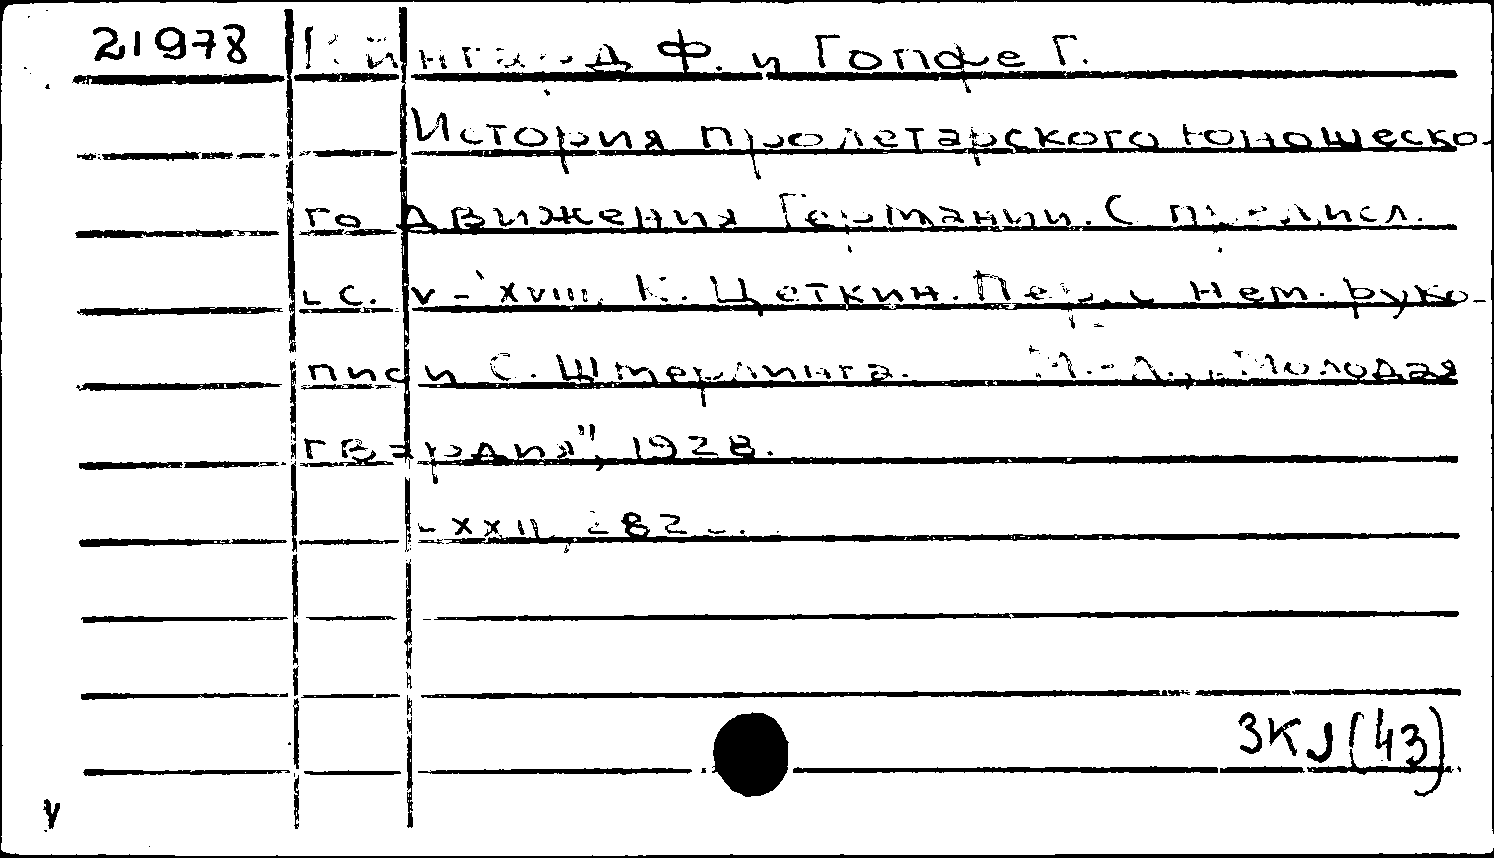 21978 Вейнгард Ф. и Гопфе Г.
История пролетарского юношеско-
го движения Германии. С предисл.
с. V-XVIII. К. Цеткин. Пер. с нем. руко-
писи С. Штерлинга. М.-Л., „Молодая
гвардия", 1928.
XXII, 282 с.
3KJ(43)
У